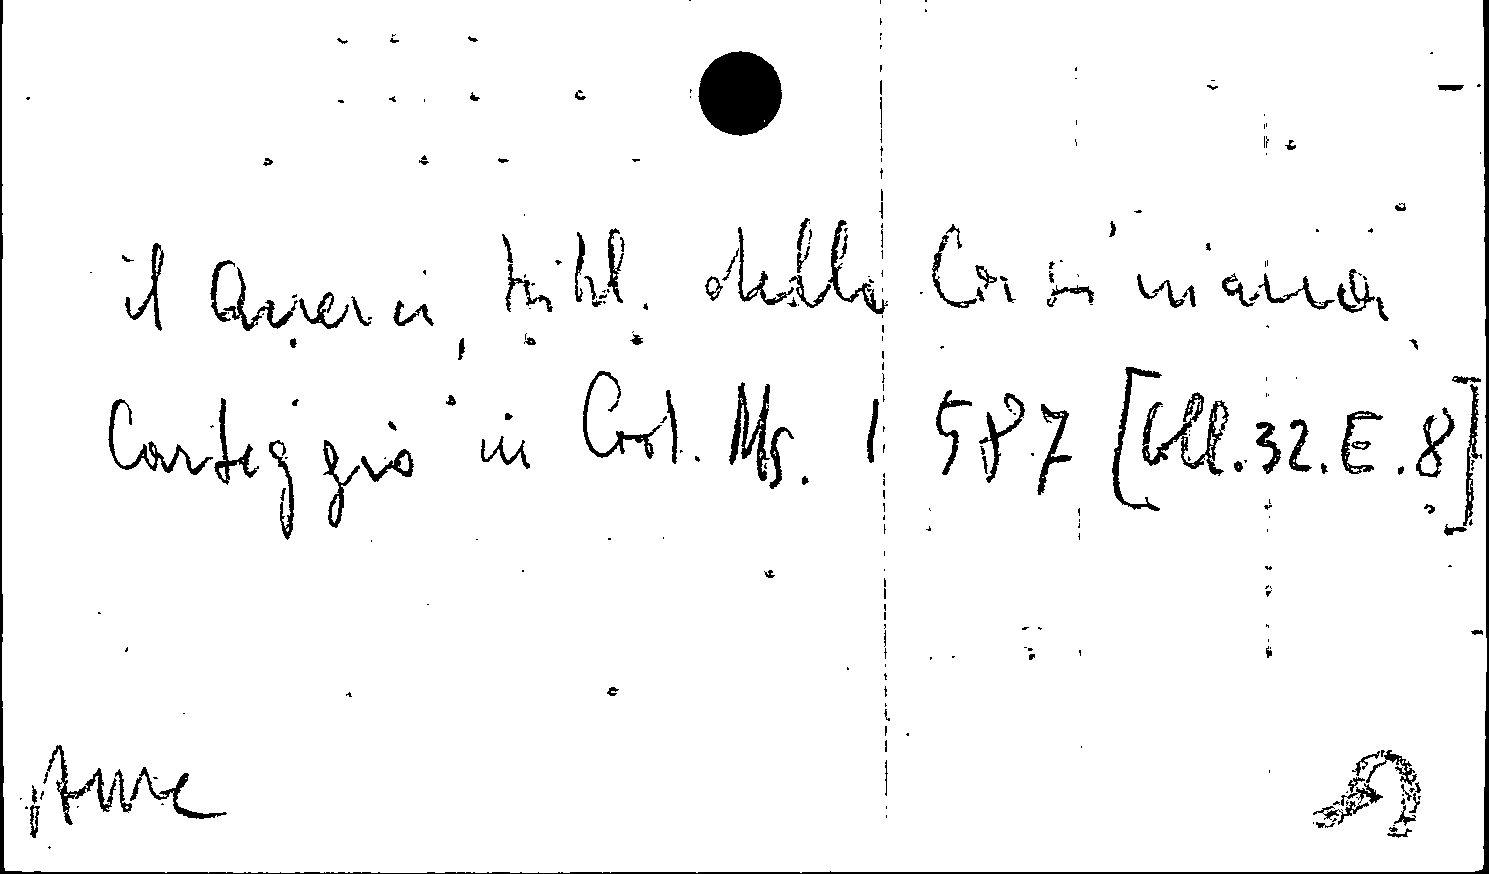 il Querci, bibl. della Corsiniana,
Carteggio in Cod. Ms. 1587 [Coll.32.E.8]